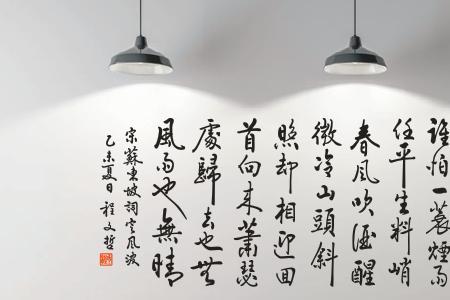 誰怕一蓑煙雨
任平生料峭
春風吹酒醒
微冷山頭斜
照却相迎回
首向来蕭瑟
處歸去也無
風雨也無晴
宋蘇東坡詞定風波
乙未夏日程文哲